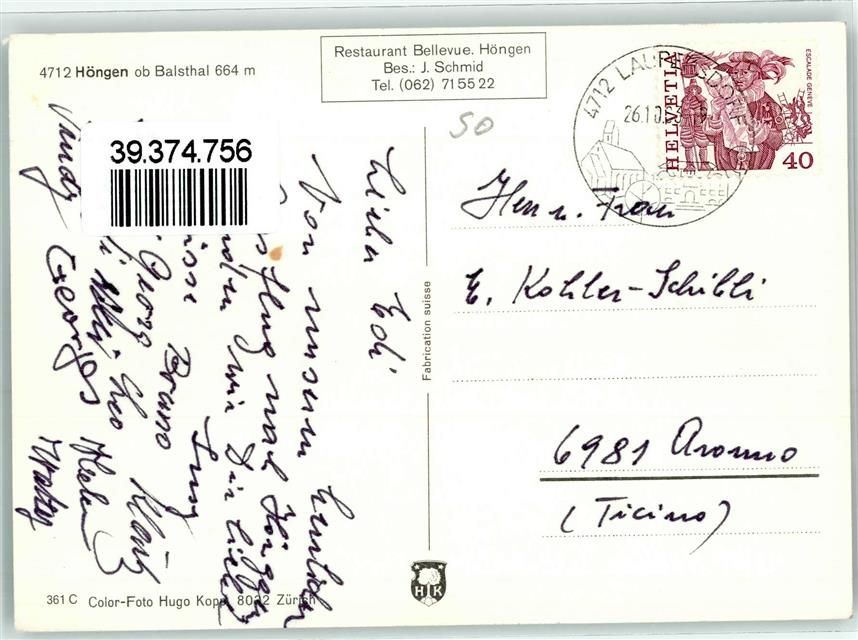 4712 Höngen ob Balsthal 664 m
Restaurant Bellevue. Höngen
Bes.: J. Schmid
Tel. (062) 71 55 22
SO
4712 LAUPERSDORF
26.10.
HELVETIA
ESCALADE GENÈVE
40
39.374.756
Lieber Edi
Von unserm herrlichen
Ausflug nach Höngen
senden wir Dir liebe
Grüsse Bruno
Georg Klaus
Leo
Georges
Walter
Herr u. Frau
E. Kohler-Schibli
6981 Aronno
(Ticino)
Fabrication suisse
HK
361 C Color-Foto Hugo Kopp, 8022 Zürich